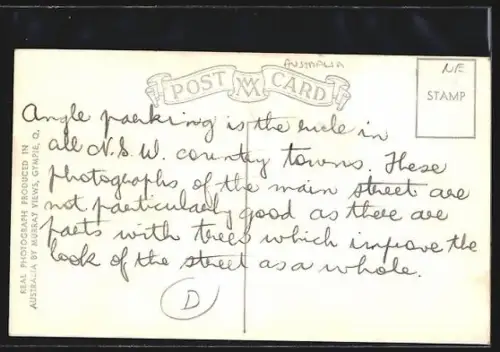 AUSTRALIA
POST CARD
NE
STAMP
Angle parking is the rule in
all N.S.W. country towns. These
photographs of the main street are
not particularly good as there are
parts with trees which improve the
look of the street as a whole.
D
REAL PHOTOGRAPH PRODUCED IN
AUSTRALIA BY MURRAY VIEWS, GYMPIE, Q.